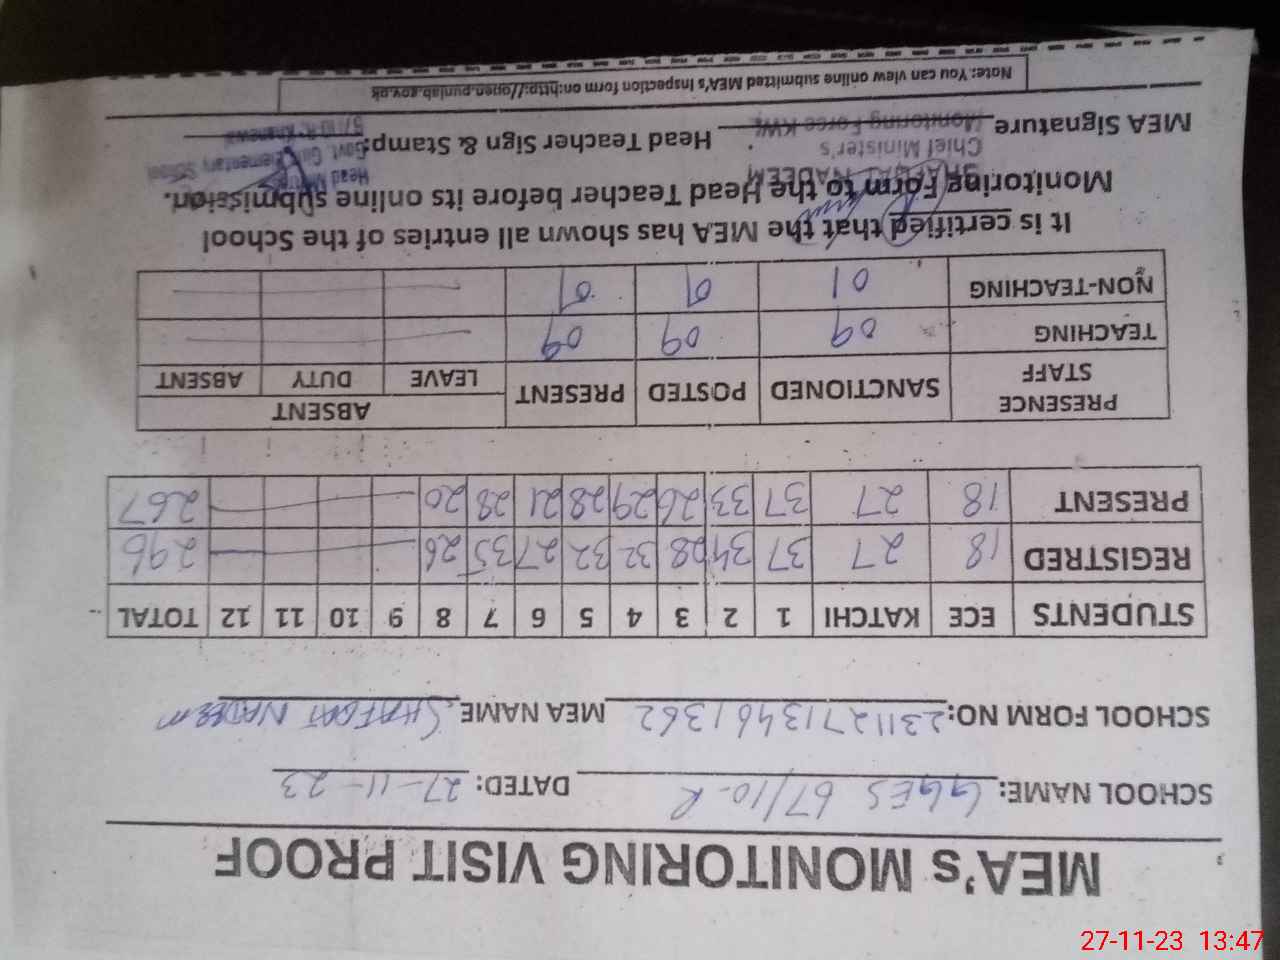 MEA's MONITORING VISIT PROOF
SCHOOL NAME: GGES 67/10-R DATED: 27-11-23
SCHOOL FORM NO: 23112713461362 MEA NAME SHAFQAT NADEEM
STUDENTS ECE KATCHI 1 2 3 4 5 6 7 8 9 10 11 12 TOTAL
REGISTRED 18 27 37 34 28 32 32 27 35 26 296
PRESENT 18 27 37 33 26 29 28 21 28 20 267
PRESENCE STAFF SANCTIONED POSTED PRESENT ABSENT
LEAVE DUTY ABSENT
TEACHING 09 09 09
NON-TEACHING 01 01 01
It is certified that the MEA has shown all entries of the School
Monitoring Form to the Head Teacher before its online submission.
SHAFQAT NADEEM
Chief Minister's
Monitoring Force KWL
MEA Signature Head Teacher Sign & Stamp:
Govt. Girls Elementary School
67/10-R Khanewal
Note: You can view online submitted MEA's Inspection form on:http://open.punjab.gov.pk
27-11-23 13:47